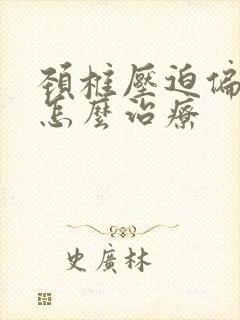 頸椎壓迫偏
怎麼治療
史廣林